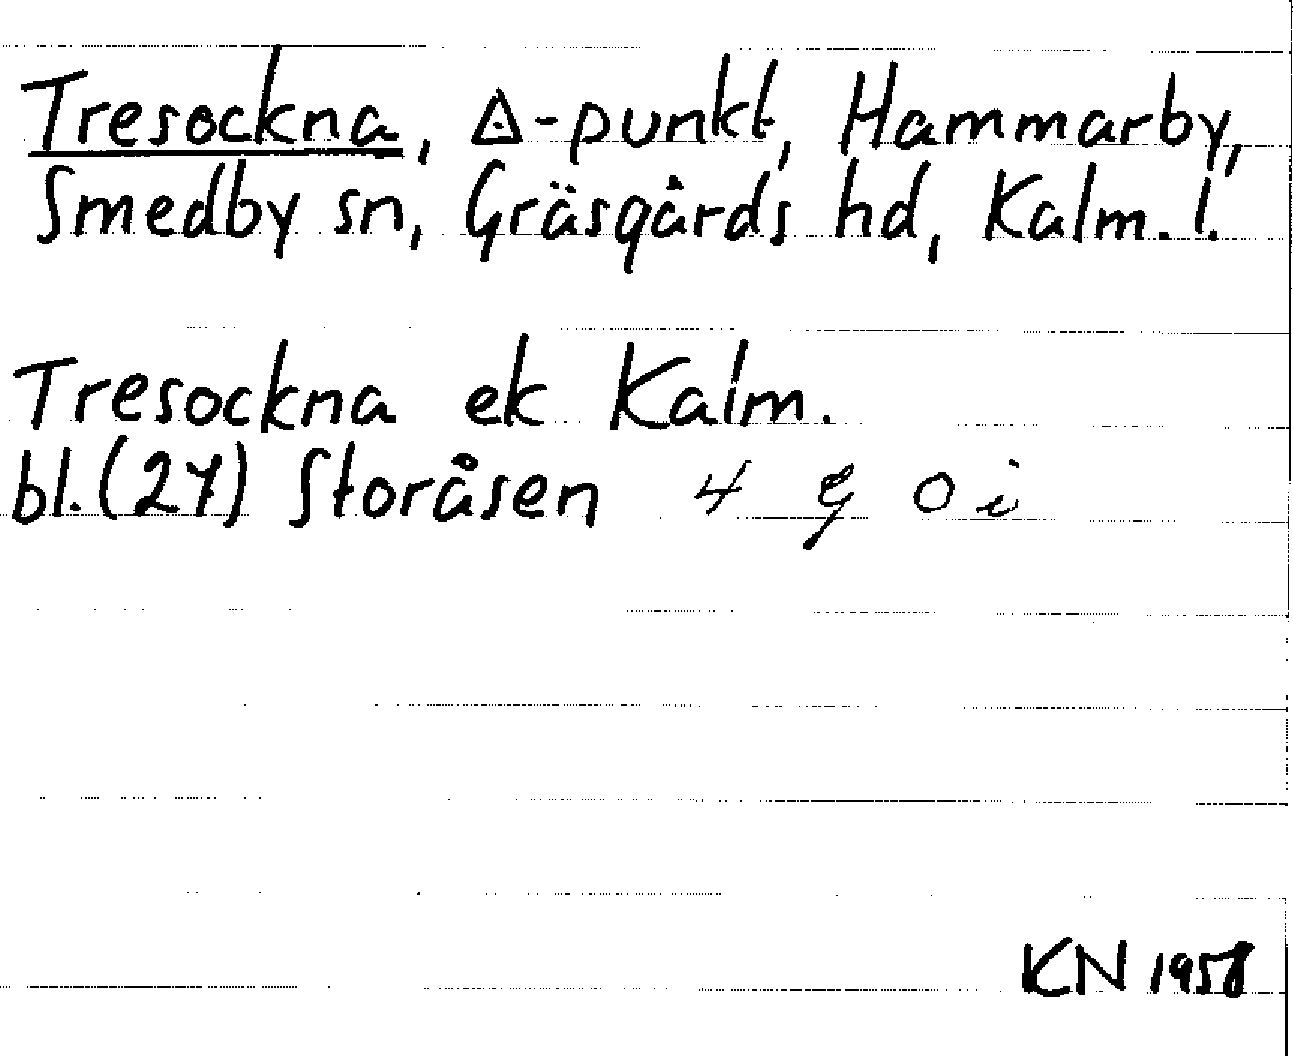 Tresockna, △-punkt, Hammarby,
Smedby sn, Gräsgårds hd, Kalm. l.
Tresockna ek Kalm.
bl. (27) Storåsen 4 g 0 i
KN 1958